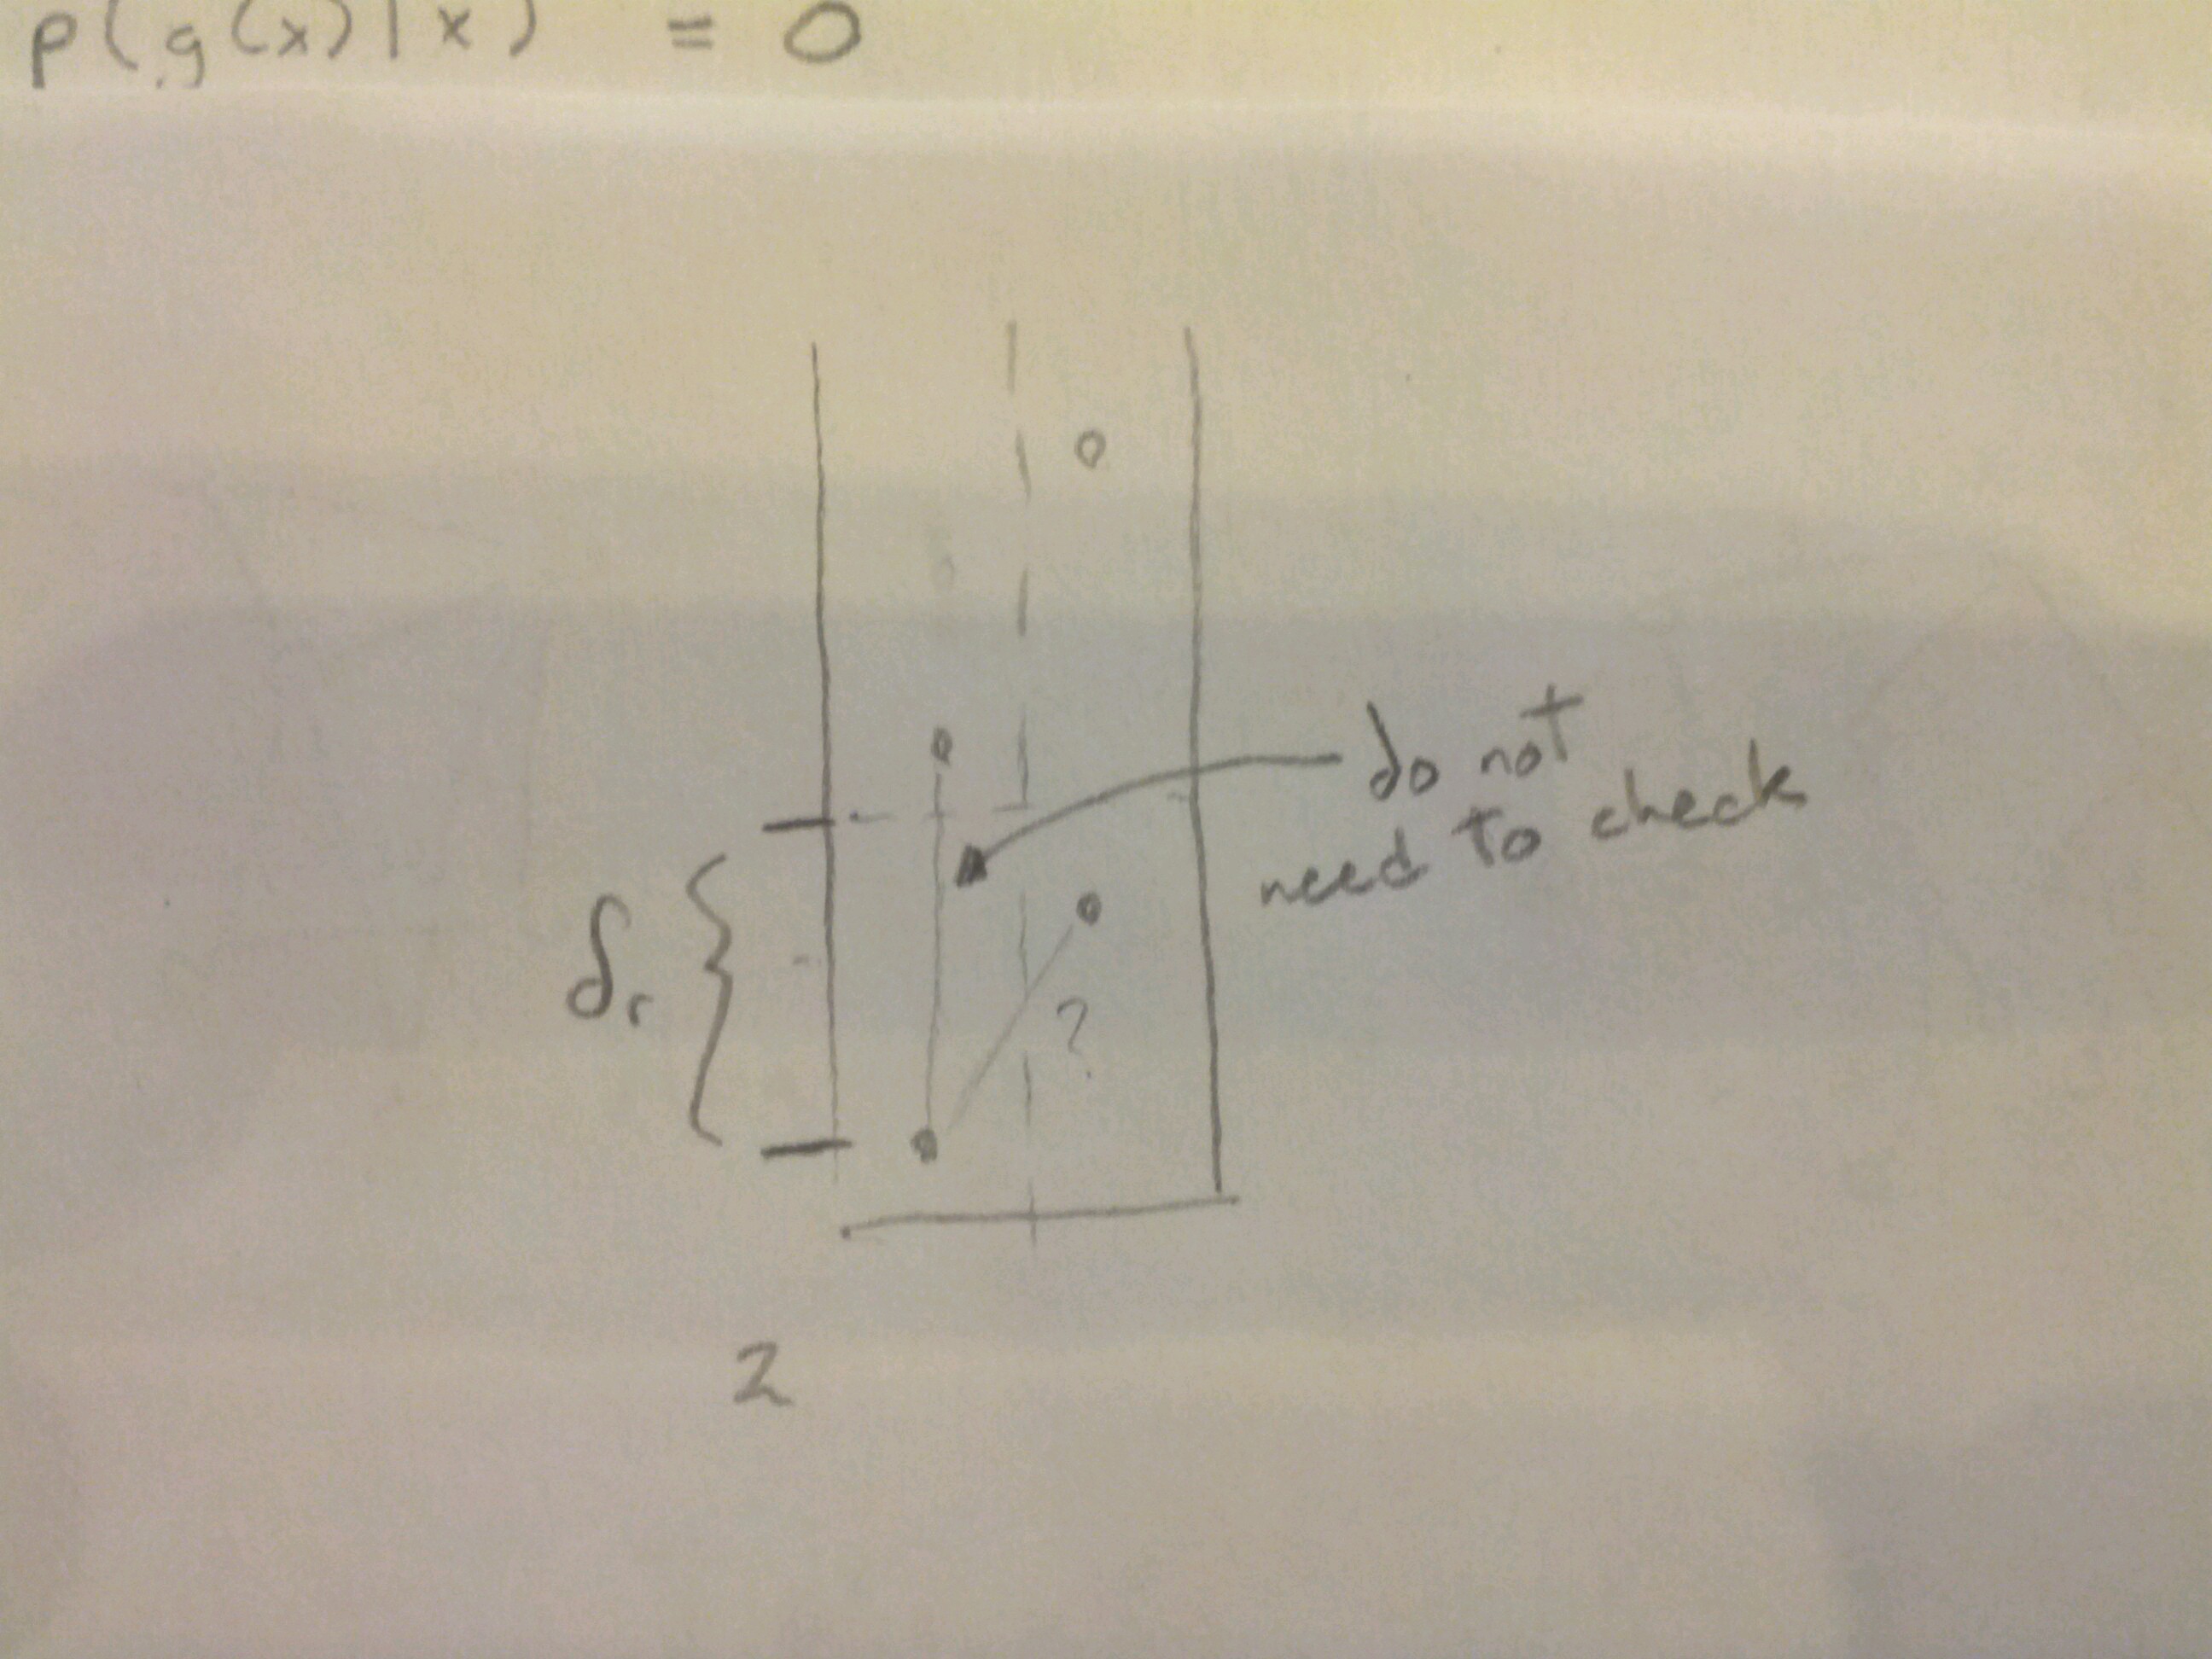 p(g(x)|x) = 0
do not
need to check
δr
?
2